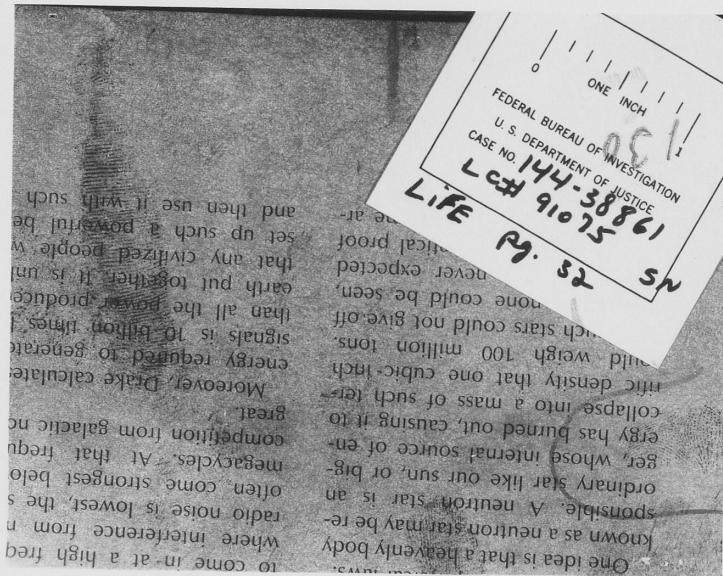 0 ONE INCH 1
FEDERAL BUREAU OF INVESTIGATION
U. S. DEPARTMENT OF JUSTICE
CASE NO. 144-38861
LC# 91075 SN
LIFE pg. 32
130
laws.
One idea is that a heavenly body
known as a neutron star may be re-
sponsible. A neutron star is an
ordinary star like our sun, or big-
ger, whose internal source of en-
ergy has burned out, causing it to
collapse into a mass of such ter-
rific density that one cubic inch
would weigh 100 million tons.
such stars could not give off
none could be seen,
never expected
proof
ar-
to come in at a high freq
where interference from n
radio noise is lowest, the s
often come strongest belo
megacycles. At that frequ
competition from galactic no
great.
Moreover, Drake calculates
energy required to generate
signals is 10 billion times
than all the power produce
earth put together. It is unl
that any civilized people w
set up such a powerful be
and then use it with such